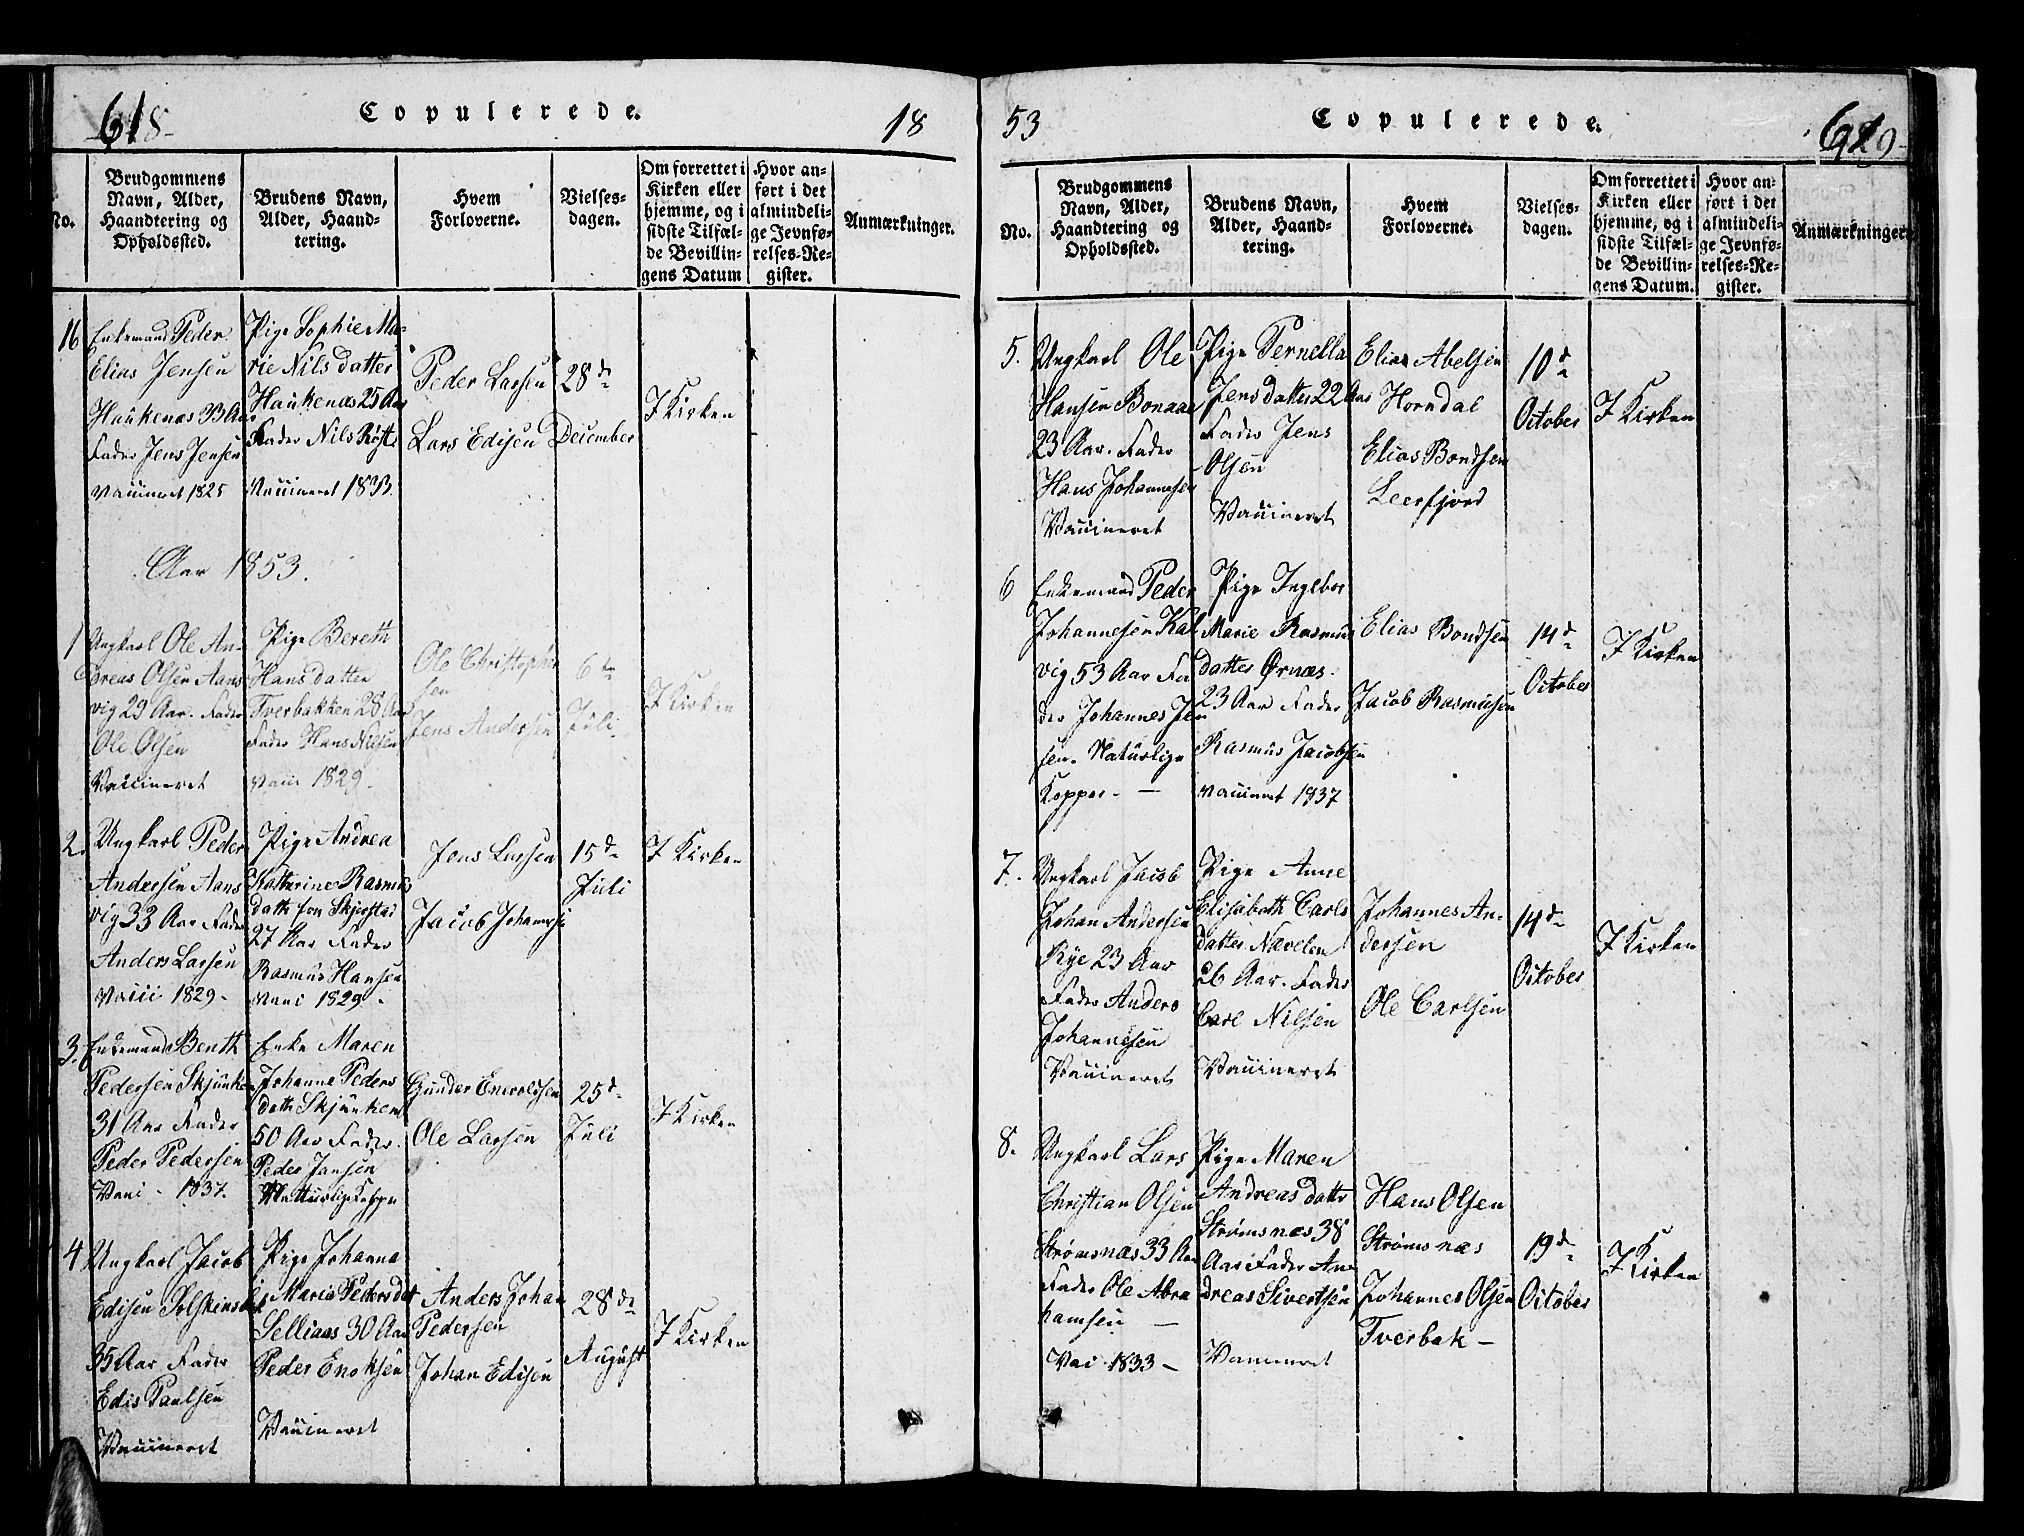 618
Copulerede.
18
No.
Brudgommens Navn, Alder, Haandtering og Opholdssted.
Brudens Navn, Alder, Haandtering.
Hvem Forloverne.
Vielsesdagen.
Om forrettet i Kirken eller hjemme, og i sidste Tilfælde Bevillingens Datum
Hvor anført i det almindelige Jevnførelses-Register.
Anmærkninger.
16
Enkemand Peder
Elias Jensen
Haukenæs
Fader Jens Jensen
Vaccineret 1825
Pige Sophie Ma-
rie Nils datter
Haukenæs 25 Aar
Fader Nils
Vaccineret 1833.
Peder Larsen
Lars Edisen
28de
December
I Kirken
Aar 1853.
1
Ungkarl Ole An-
dreas Olsen Aans
vig 29 Aar. Fader
Ole Olsen
Vaccineret
Pige Bereth
Hans datter
Tverbakken 28 Aar
Fader Hans Nilsen
Vacc 1829.
Ole Christopher
sen
Jens Andersen
6te
Juli
I Kirken
2.
Ungkarl Peder
Andersen Aans
vig 33 Aar Fader
Anders Larsen
Vacci 1829-
Pige Andrea
Katherine Rasmus
datt fra Skjerstad
27 Aar Fader
Rasmus Hansen
Vacci 1829-
Jens Larsen
Jacob Johannes
15d
Juli
I Kirken
3.
Enkemand Benth
Pedersen
31 Aar Fader
Peder Pedersen
Vacci - 1837.
Enke Maren
Johanne Peders
datt
50 Aar Fader
Peder Jansen
Gunder Enevoldsen
Ole Larsen
25d
Juli
I Kirken
4
Ungkarl Jacob
Edisen
35 Aar Fader
Edis Paulsen
Vaccineret
Pige Johanna
Maria Pedersdat
Selliaas 30 Aar
Peder Enoksen
Vaccineret
Anders Johan
Pedersen
Johan Edisen
28de
August
I Kirken
53
Copulerede.
No.
Brudgommens Navn, Alder, Haandtering og Opholdssted.
Brudens Navn, Alder, Haandtering.
Hvem Forloverne.
Vielsesdagen.
Om forrettet i Kirken eller hjemme, og i sidste Tilfælde Bevillingens Datum.
Hvor anført i det almindelige Jevnførelses-Register.
Anmærkninger
5.
Ungkarl Ole
Hansen Bonaae
23 Aar. Fader
Hans Johannesen
Vaccineret
Pige Pernella
Jens datter 22 Aar
Fader Jens
Olsen
Vaccineret
Elias Abelsen
Horndal
Elias Bondsen
Leerfjord
10d
October
I Kirken
6
Enkemand Peder
Johannesen Kal
vig 53 Aar Fa
der Johannes Jen
sen. Naturlige
Kopper. —
Pige Ingebor
Marie Rasmus
datter Ørnæs.
23 Aar Fader
Rasmus Jacobsen
Vaccineret 1837
Elias Bondsen
Jacob Rasmusen
14d
October
I Kirken
7.
Ungkarl Jacob
Johan Andersen
Rye 23 Aar
Fader Anders
Johannesen
Vaccineret
Pige Anne
Elisabeth Carls
datter Navelen
26 Aar. Fader
Carl Nilsen
Vaccineret
Johannes An-
dersen
Ole Carlsen
14d
October
I Kirken
8.
Ungkarl Lars
Christian Olsen
Strømsnæs 33 Aar
Fader Ole Abra
hamsen —
Vac 1833 -
Pige Maren
Andreas datt
Strømsnæs 38
Aar Fader An
dreas Sivertsen
Vaccineret
Hans Olsen
Strømsnæs
Johannes Olsen
Tverbak -
19d
October
I Kirken